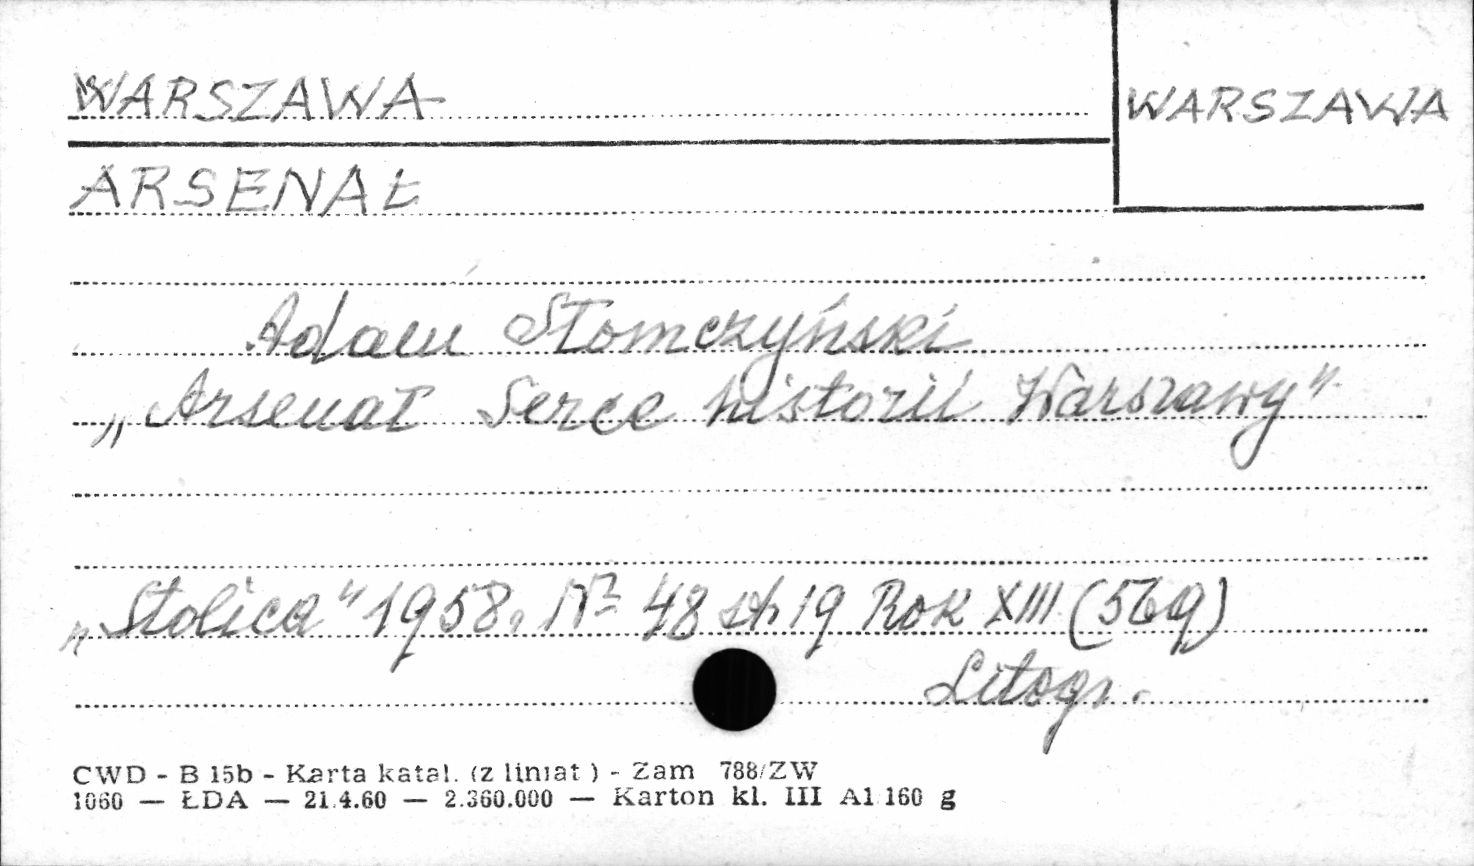 WARSZAWA
WARSZAWA
ARSENAŁ
Adam Słomczyński
„Arsenał Serce historii Warszawy"
„Stolica" 1958. Nº 48 str 19 Rok XIII (569)
Litogr.
CWD - B 15b - Karta katal. (z liniat ) - Zam 788/ZW
1060 — ŁDA — 21.4.60 — 2.360.000 — Karton kl. III A1 160 g